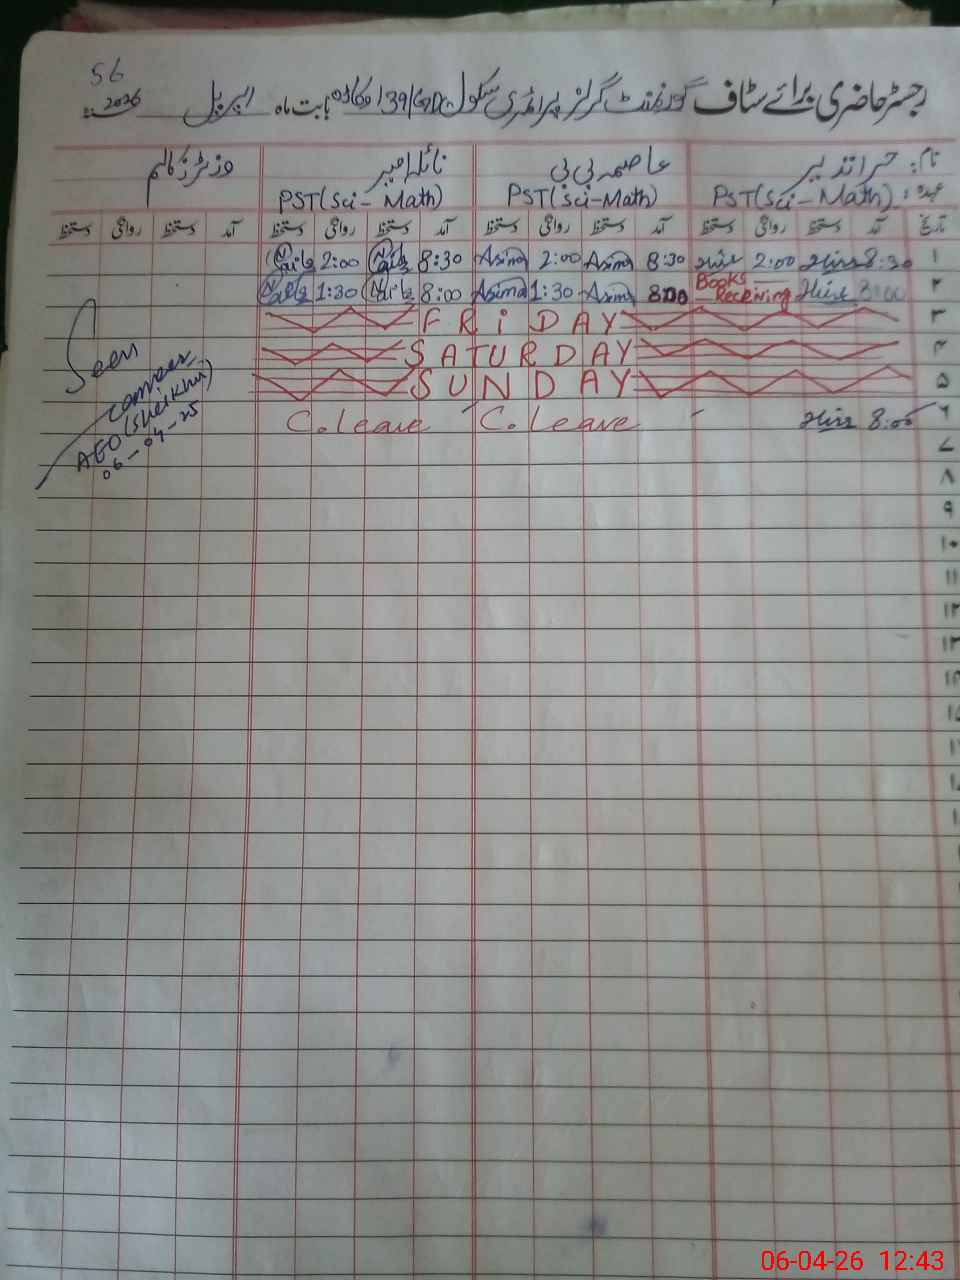 56
رجسٹر حاضری برائے سٹاف گورنمنٹ گرلز پرائمری سکول 139/GD بابت ماہ اپریل 2026
نام: حرا نذیر عاصمہ بی بی نائلہ امبر وزیٹرز کالم
عہدہ: PST(Sci-Math) PST(Sci-Math) PST(Sci-Math)
تاریخ آمد دستخط روانگی دستخط آمد دستخط روانگی دستخط آمد دستخط روانگی دستخط آمد دستخط روانگی دستخط
۱ 8:30 Hira 2:00 Hira 8:30 Asima 2:00 Asima 8:30 Naila 2:00 Naila
۲ 8:00 Hira Books Receiving 8:00 Asima 1:30 Asima 8:00 Naila 1:30 Naila
۳ FRiDAY
۴ SATURDAY
۵ SUNDAY
۶ 8:00 Hira C.leave C.leave
۷
۸
۹
۱۰
۱۱
۱۲
۱۳
Seen
AEO (Sheikhu)
06-04-25
06-04-26 12:43